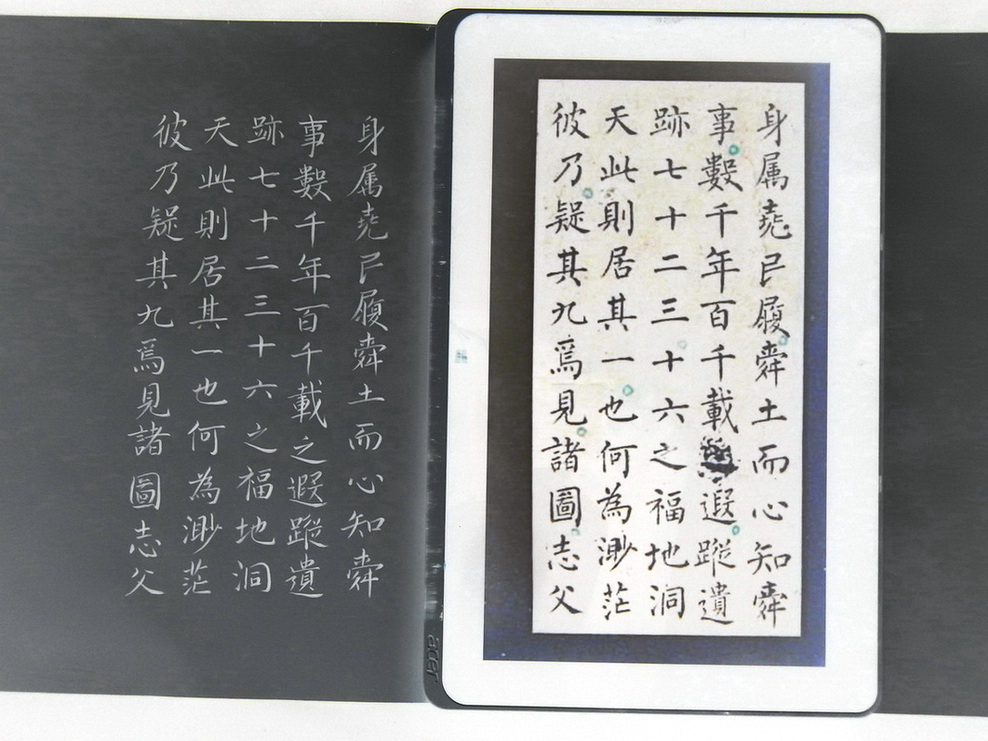 身属尭民履舜土而心知舜
事數千年百千載遐蹤遺
跡七十二三十六之福地洞
天此則居其一也何為渺茫
彼乃疑其九焉見諸圖志父
acer
身属尭民履舜土而心知舜
事數千年百千載之遐蹤遺
跡七十二三十六之福地洞
天此則居其一也何為渺茫
彼乃疑其九焉見諸圖志父